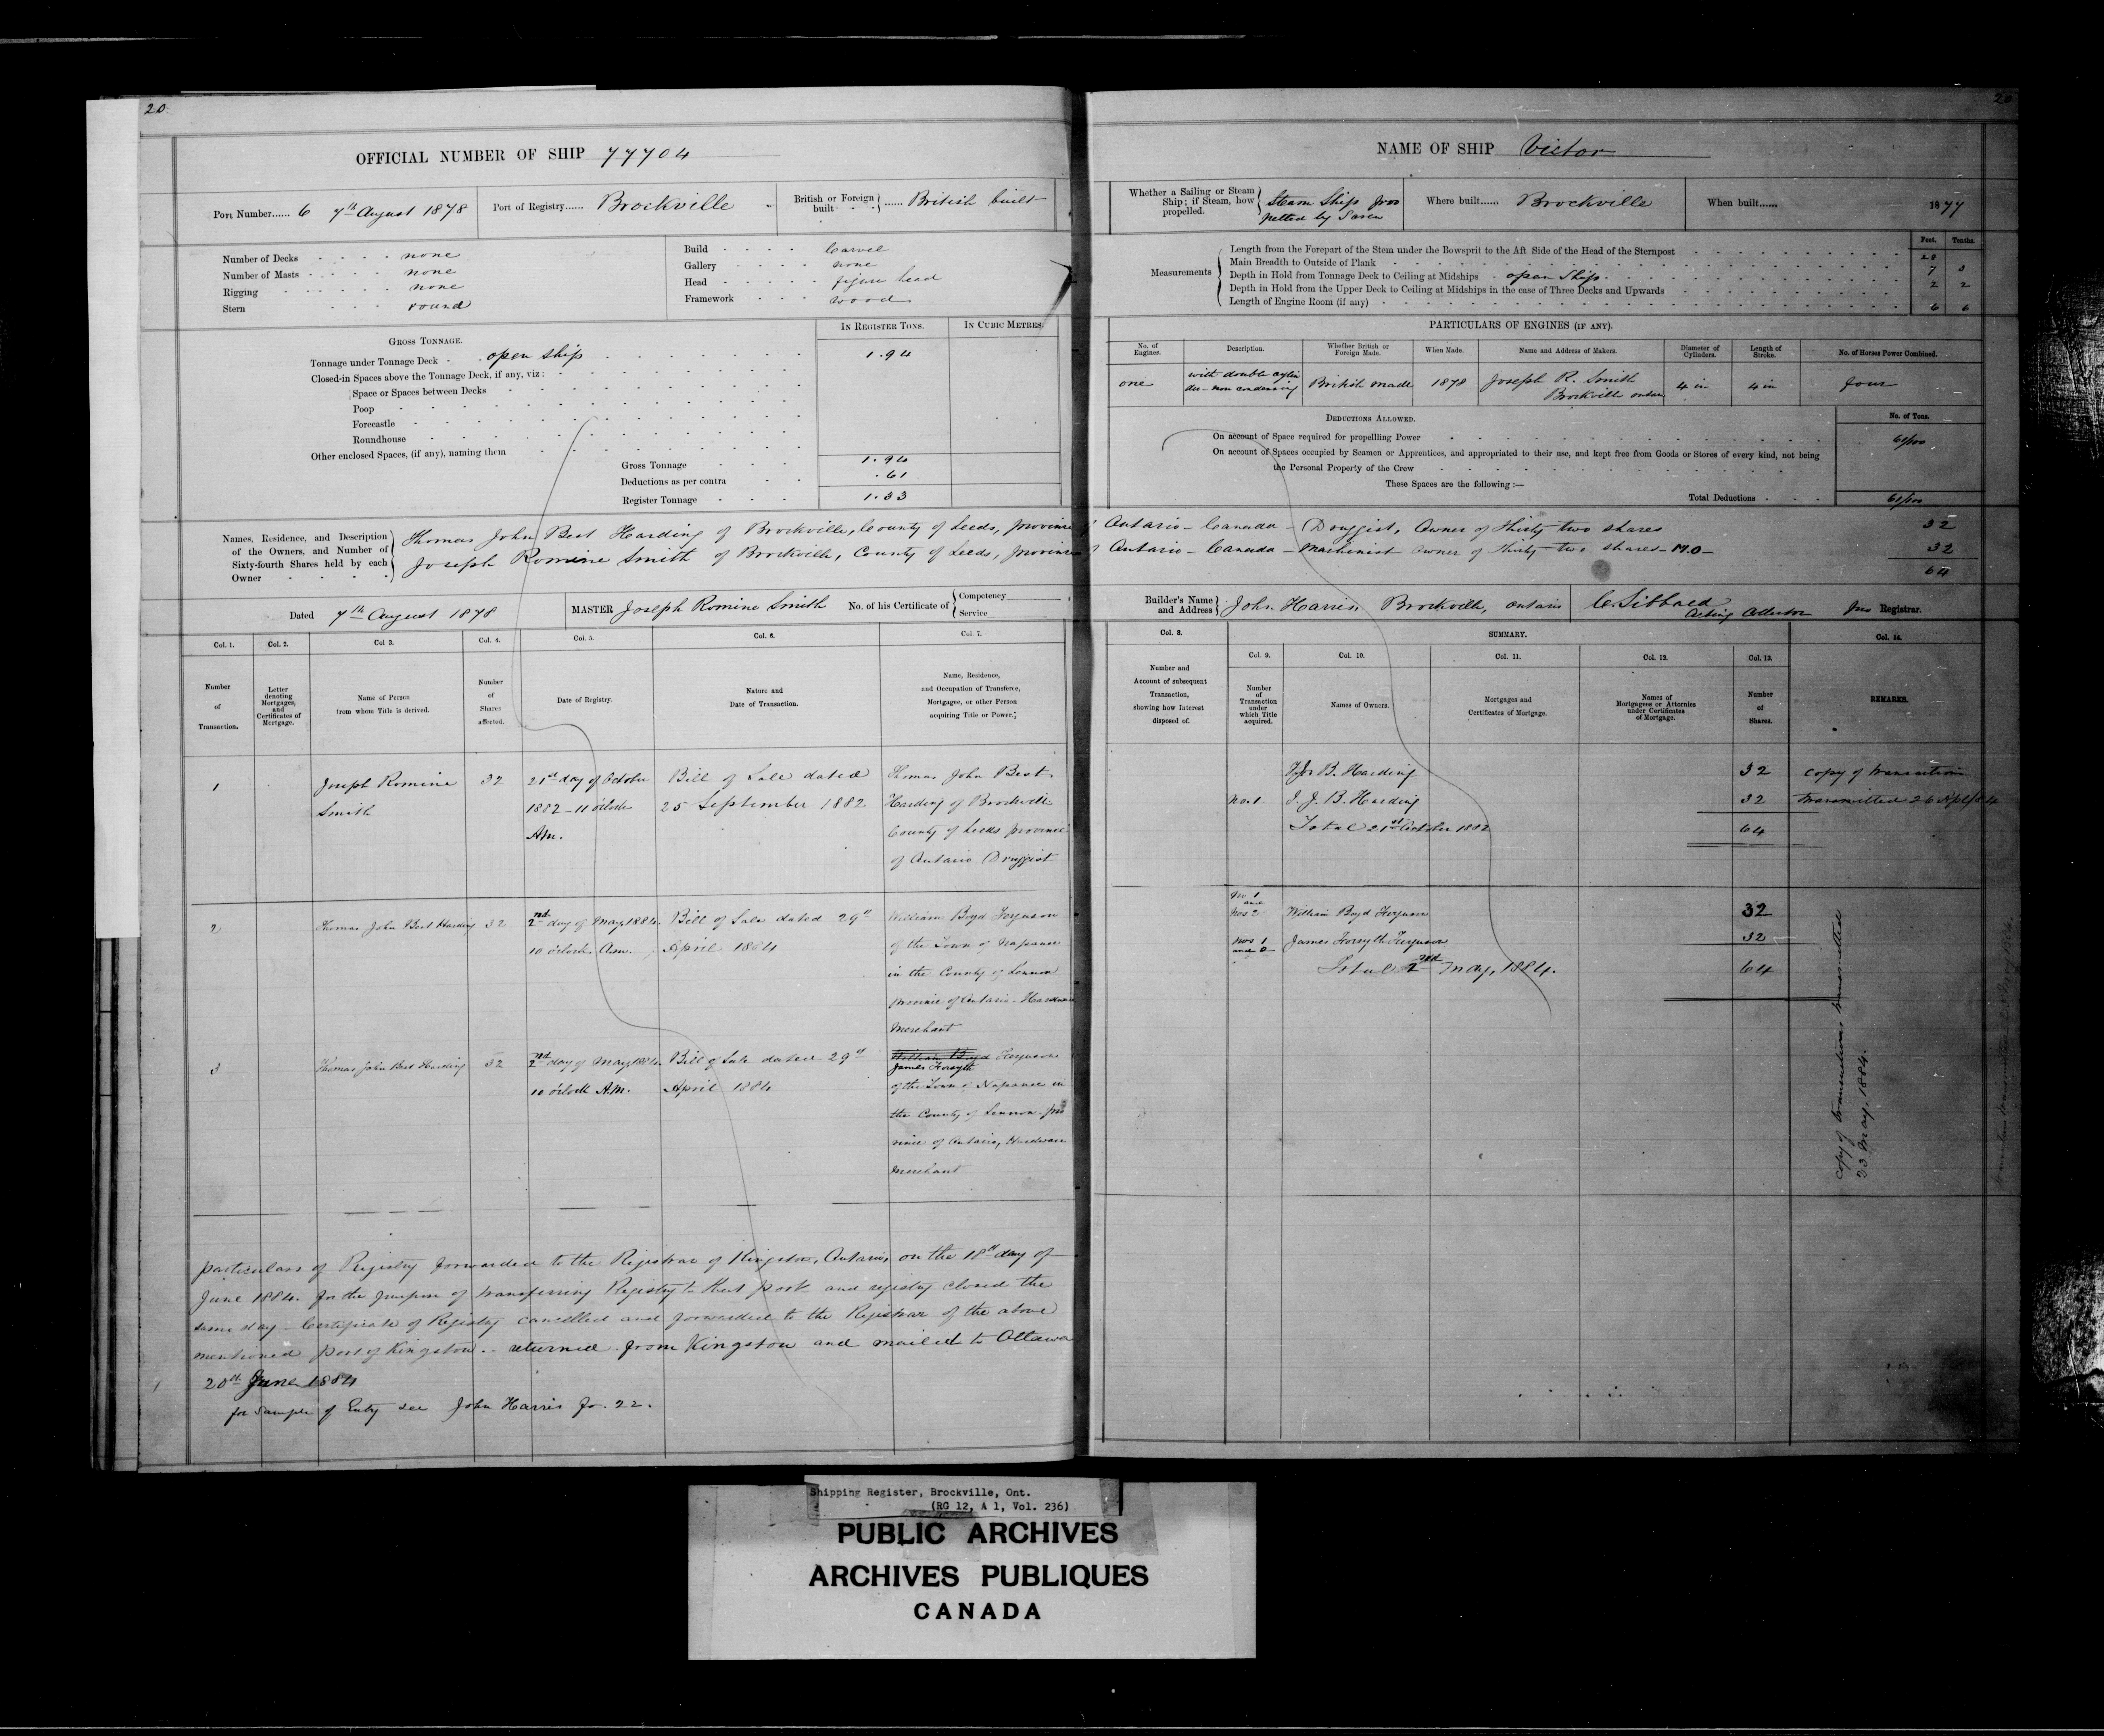 20
OFFICIAL NUMBER OF SHIP 77704
Port Number...... 6 7th August 1878
Port of Registry...... Brockville
British or Foreign built ...... British built
Number of Decks none
Number of Masts none
Rigging none
Stern round
Build Carvel
Gallery none
Head figure head
Framework wood
GROSS TONNAGE.
IN REGISTER TONS.
IN CUBIC METRES.
Tonnage under Tonnage Deck open ship 1.94
Closed-in Spaces above the Tonnage Deck, if any, viz:
Space or Spaces between Decks
Poop
Forecastle
Roundhouse
Other enclosed Spaces, (if any), naming them
Gross Tonnage 1.94
Deductions as per contra .61
Register Tonnage 1.33
Names, Residence, and Description
of the Owners, and Number of
Sixty-fourth Shares held by each
Owner
Thomas John Best Harding of Brockville, County of Leeds, province
Joseph Romine Smith of Brockville, County of Leeds, province
Dated 7th August 1878
MASTER Joseph Romine Smith No. of his Certificate of
Competency
Service
Col. 1.
Number
of
Transaction.
Col. 2.
Letter
denoting
Mortgages,
and
Certificates of
Mortgage.
Col 3.
Name of Person
from whom Title is derived.
Col. 4.
Number
of
Shares
affected.
Col. 5.
Date of Registry.
Col. 6.
Nature and
Date of Transaction.
Col. 7.
Name, Residence,
and Occupation of Transferee,
Mortgagee, or other Person
acquiring Title or Power.
1
Joseph Romine
Smith
32
21st day of October
1882 - 11 o'clock
Am.
Bill of Sale dated
25 September 1882
Thomas John Best
Harding of Brockville
County of Leeds province
of Ontario Druggist
2
Thomas John Best Harding
32
2nd day of May 1884
10 o'clock Am.
Bill of Sale dated 29th
April 1884
William Boyd Ferguson
of the Town of Napanee
in the County of Lennox
province of Ontario - Hardware
Merchant
3
Thomas John Best Harding
32
2nd day of May 1884
10 o'clock A.M.
Bill of Sale dated 29th
April 1884
William Boyd Ferguson
James Forsyth
of the Town of Napanee in
the County of Lennox pro
vince of Ontario, Hardware
Merchant
particulars of Registry forwarded to the Registrar of Kingston, Ontario, on the 18th day of
June 1884. for the purpose of transferring Registry to that port and registry closed the
same day - Certificate of Registry cancelled and forwarded to the Registrar of the above
mentioned port of Kingston. - returned from Kingston and mailed to Ottawa
20th June 1884
for Sample of Entry see John Harris fo. 22.
20
NAME OF SHIP Victor
Whether a Sailing or Steam
Ship; if Steam, how
propelled.
Steam Ship pro
pelled by Screw
Where built...... Brockville
When built...... 1877
Measurements
Feet. Tenths.
Length from the Forepart of the Stem under the Bowsprit to the Aft Side of the Head of the Sternpost 28
Main Breadth to Outside of Plank 7 3
Depth in Hold from Tonnage Deck to Ceiling at Midships open Ship 2 2
Depth in Hold from the Upper Deck to Ceiling at Midships in the case of Three Decks and Upwards
Length of Engine Room (if any) 6 6
PARTICULARS OF ENGINES (IF ANY).
No. of
Engines.
Description.
Whether British or
Foreign Made.
When Made.
Name and Address of Makers.
Diameter of
Cylinders.
Length of
Stroke.
No. of Horses Power Combined.
one
with double cylin
der - non condensing
British made
1878
Joseph R. Smith
Brockville
4 in
4 in
four
DEDUCTIONS ALLOWED.
No. of Tons.
On account of Space required for propelling Power 61/100
On account of Spaces occupied by Seamen or Apprentices, and appropriated to their use, and kept free from Goods or Stores of every kind, not being
the Personal Property of the Crew
These Spaces are the following :—
Total Deductions 61/100
of Ontario - Canada - Druggist, Owner of Thirty two shares 32
of Ontario - Canada - Machinist owner of Thirty-two shares - 32
64
Builder's Name
and Address
John Harris, Brockville, Ontario
C. Sibbald
Acting Collector
Registrar.
Col. 8.
Number and
Account of subsequent
Transaction,
showing how Interest
disposed of.
SUMMARY.
Col. 9.
Number
of
Transaction
under
which Title
acquired.
Col. 10.
Names of Owners.
Col. 11.
Mortgages and
Certificates of Mortgage.
Col. 12.
Names of
Mortgagees or Attornies
under Certificates
of Mortgage.
Col. 13.
Number
of
Shares.
Col. 14.
REMARKS.
B. Harding 32 copy of transaction
No. 1 T. J. B. Harding 32 transmitted 26
Total 21st October 1882 64
No 1
and
Nos 2
William Boyd Ferguson 32
Nos 1
and 2
James Forsyth Ferguson 32
Total 2nd May, 1884. 64
copy of transactions transmitted
23 May, 1884.
Shipping Register, Brockville, Ont.
(RG 12, A 1, Vol. 236)
PUBLIC ARCHIVES
ARCHIVES PUBLIQUES
CANADA